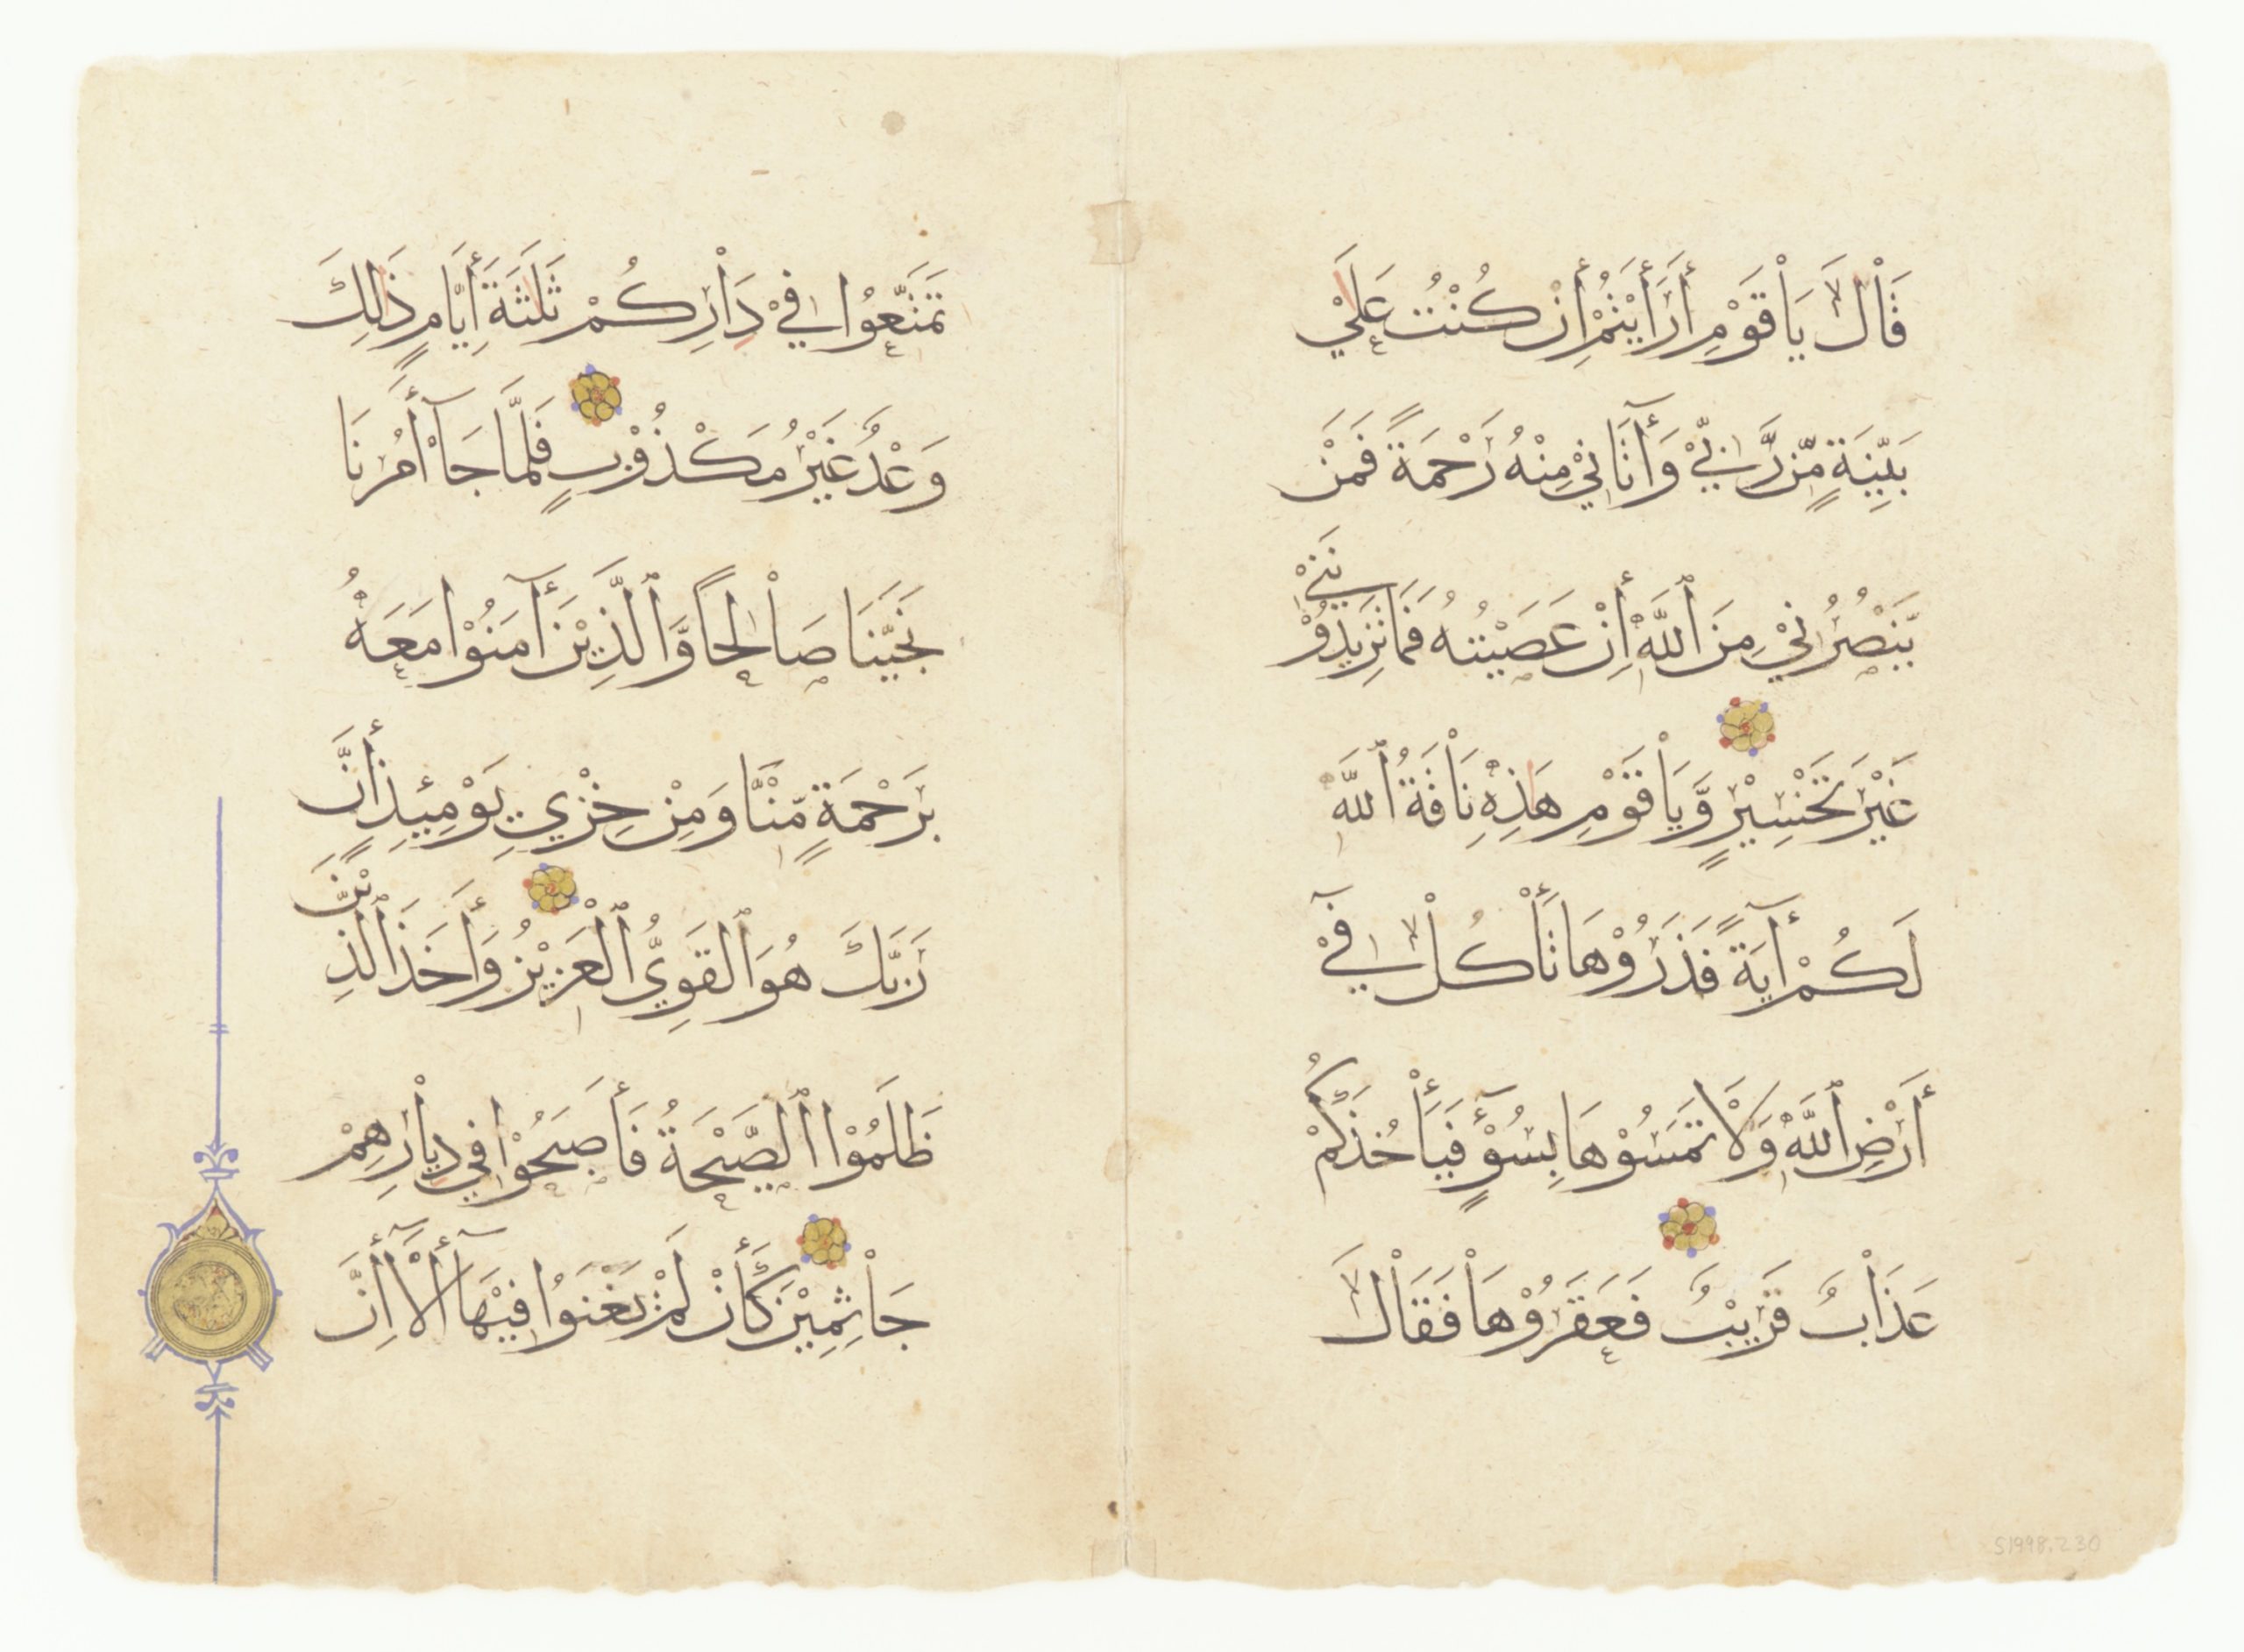 قَالَ يَا قَوْمِ أَرَأَيْتُمْ إِنْ كُنْتُ عَلَىٰ
بَيِّنَةٍ مِّن رَّبِّيْ وَآتَانِيْ مِنْهُ رَحْمَةً فَمَنْ
يَّنْصُرُنِيْ مِنَ ٱللَّهِ إِنْ عَصَيْتُهُ فَمَا تَزِيْدُوْنَنِيْ
غَيْرَ تَخْسِيْرٍ وَّيَا قَوْمِ هَٰذِهِ نَاقَةُ ٱللَّهِ
لَكُمْ آيَةً فَذَرُوْهَا تَأْكُلْ فِيْ
أَرْضِ ٱللَّهِ وَلَا تَمَسُّوْهَا بِسُوْءٍ فَيَأْخُذَكُمْ
عَذَابٌ قَرِيْبٌ فَعَقَرُوْهَا فَقَالَ
تَمَتَّعُوا فِيْ دَارِكُمْ ثَلَٰثَةَ أَيَّامٍ ذَٰلِكَ
وَعْدٌ غَيْرُ مَكْذُوْبٍ فَلَمَّا جَآءَ أَمْرُنَا
نَجَّيْنَا صَالِحًا وَّالَّذِيْنَ آمَنُوْا مَعَهُ
بِرَحْمَةٍ مِّنَّا وَمِنْ خِزْيِ يَوْمِئِذٍ إِنَّ
رَبَّكَ هُوَ ٱلْقَوِيُّ ٱلْعَزِيْزُ وَأَخَذَ الَّذِيْنَ
ظَلَمُوْا ٱلصَّيْحَةُ فَأَصْبَحُوْا فِي دِيَارِهِمْ
جَاثِمِيْنَ كَأَنْ لَمْ يَغْنَوْا فِيْهَا أَلَا إِنَّ
S1998.230